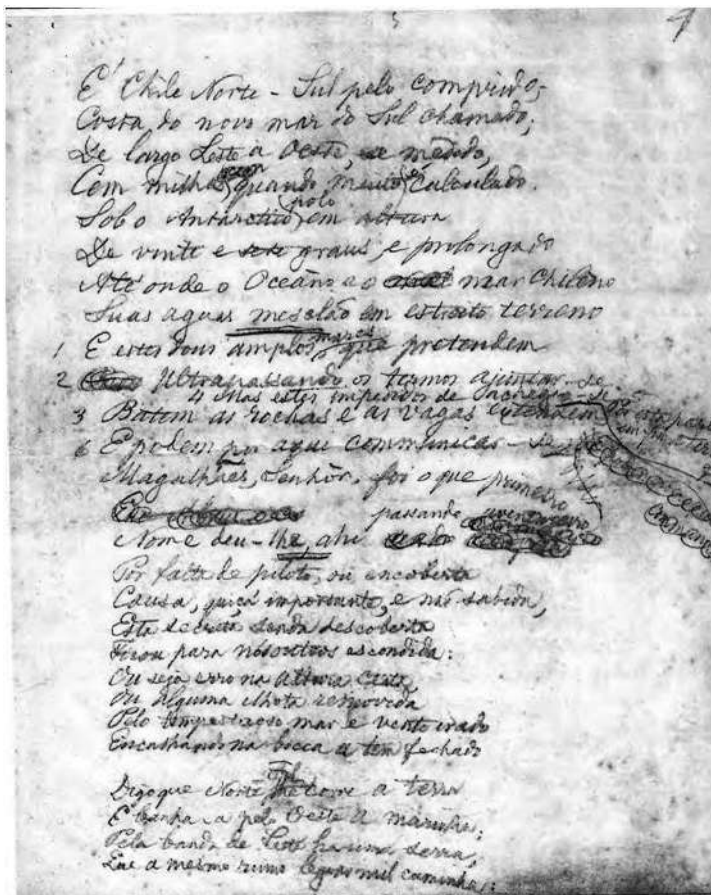 É Chile Norte - Sul pelo comprido,
Costa do novo mar do Sul chamado;
De largo Leste a Oeste, se medido,
Com milhas quando muito calculado.
Sob o Antarctico polo em altura
De vinte e sete graus, e prolongado
Até onde o Oceano e o mar Chileno
Suas aguas mesclão em estreito terreno
1 E estes dous amplos mares, que pretendem
2 Ultrapassando os termos ajuntar-se
4 Mas estes impedidos de
3 Batem as rochas e as vagas extendem
6 E podem por aqui communicar-se
Magalhães, Senhor, foi o que primeiro
passando aventureiro
Nome deu-lhe, ahi
Por falta de piloto, ou encoberta
Causa, quiçá importante, e não sabida,
Esta secreta senda descoberta
Ficou para nósoutros escondida:
Ou seja erro na altura certa,
Ou alguma ilhota removida
Pelo tempestuoso mar e vento irado
Encalhando na bocca a tem fechado
Digo que Norte Sul lhe corre a terra
E banha-a pelo Oeste a marinha;
Pela banda de Leste ha uma serra,
Que o mesmo rumo leguas mil caminha: